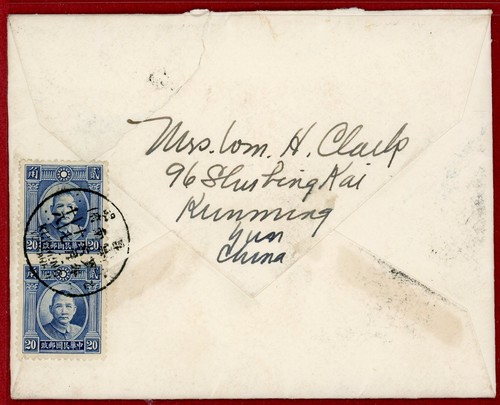 Mrs. Wm. H. Clark
96 Shu bing Kai
Kunming
Yun
China
角 貳
20 政郵國民華中 20
角 貳
20 政郵國民華中 20